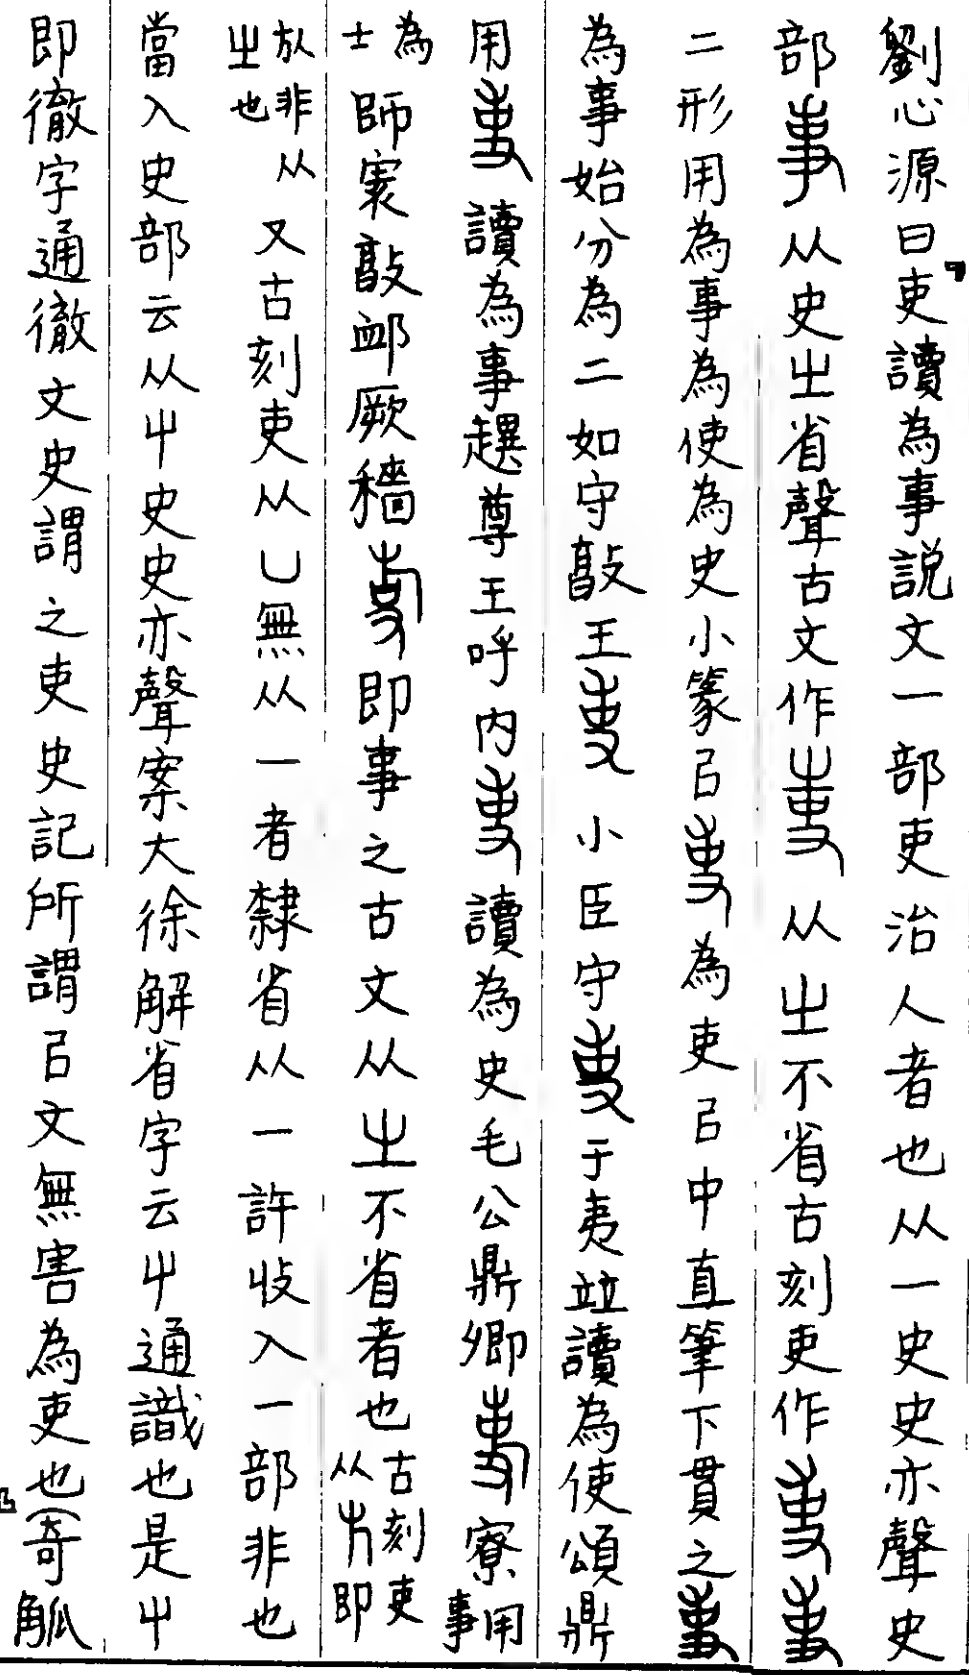 劉心源曰吏讀為事説文一部吏治人者也从一史史亦聲史
部从史㞢省聲古文作从㞢不省古刻吏作
二形用為事為使為史小篆㠯為吏㠯中直筆下貫之
為事始分為二如守敔王小臣守于夷並讀為使頌鼎
用讀為事趩尊王呼內讀為史毛公鼎卿寮用事
為士師寰敔卹厥穡即事之古文从㞢不省者也古刻吏从即
㫃非从㞢也又古刻吏从凵無从一者隸省从一許收入一部非也
當入史部云从屮史史亦聲案大徐解省字云屮通識也是屮
即徹字通徹文史謂之吏史記所謂㠯文無害為吏也（奇觚